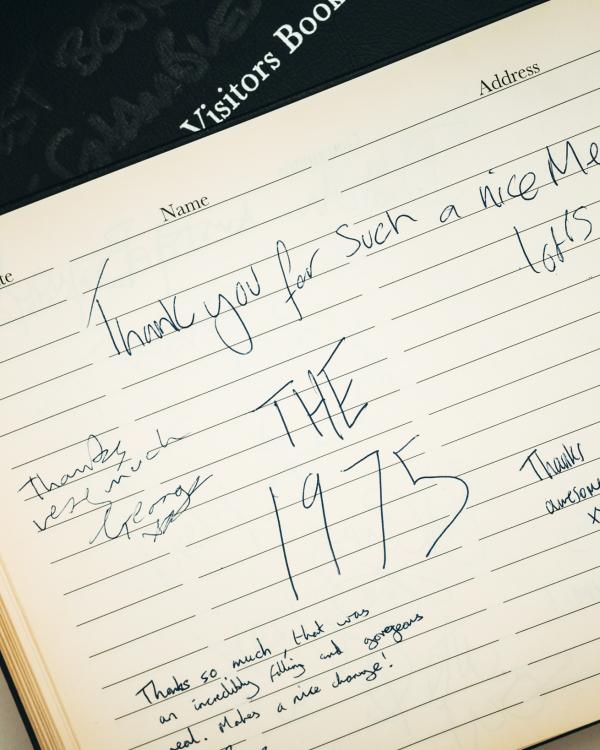 Visitors Book
Address
Name
te
Thank you for Such a nice Me
lots
THE
1975
Thanks
very much
George
xx
Thanks
awesome
x
Thanks so much, that was
an incredibly filling and gorgeous
eal. Makes a nice change!